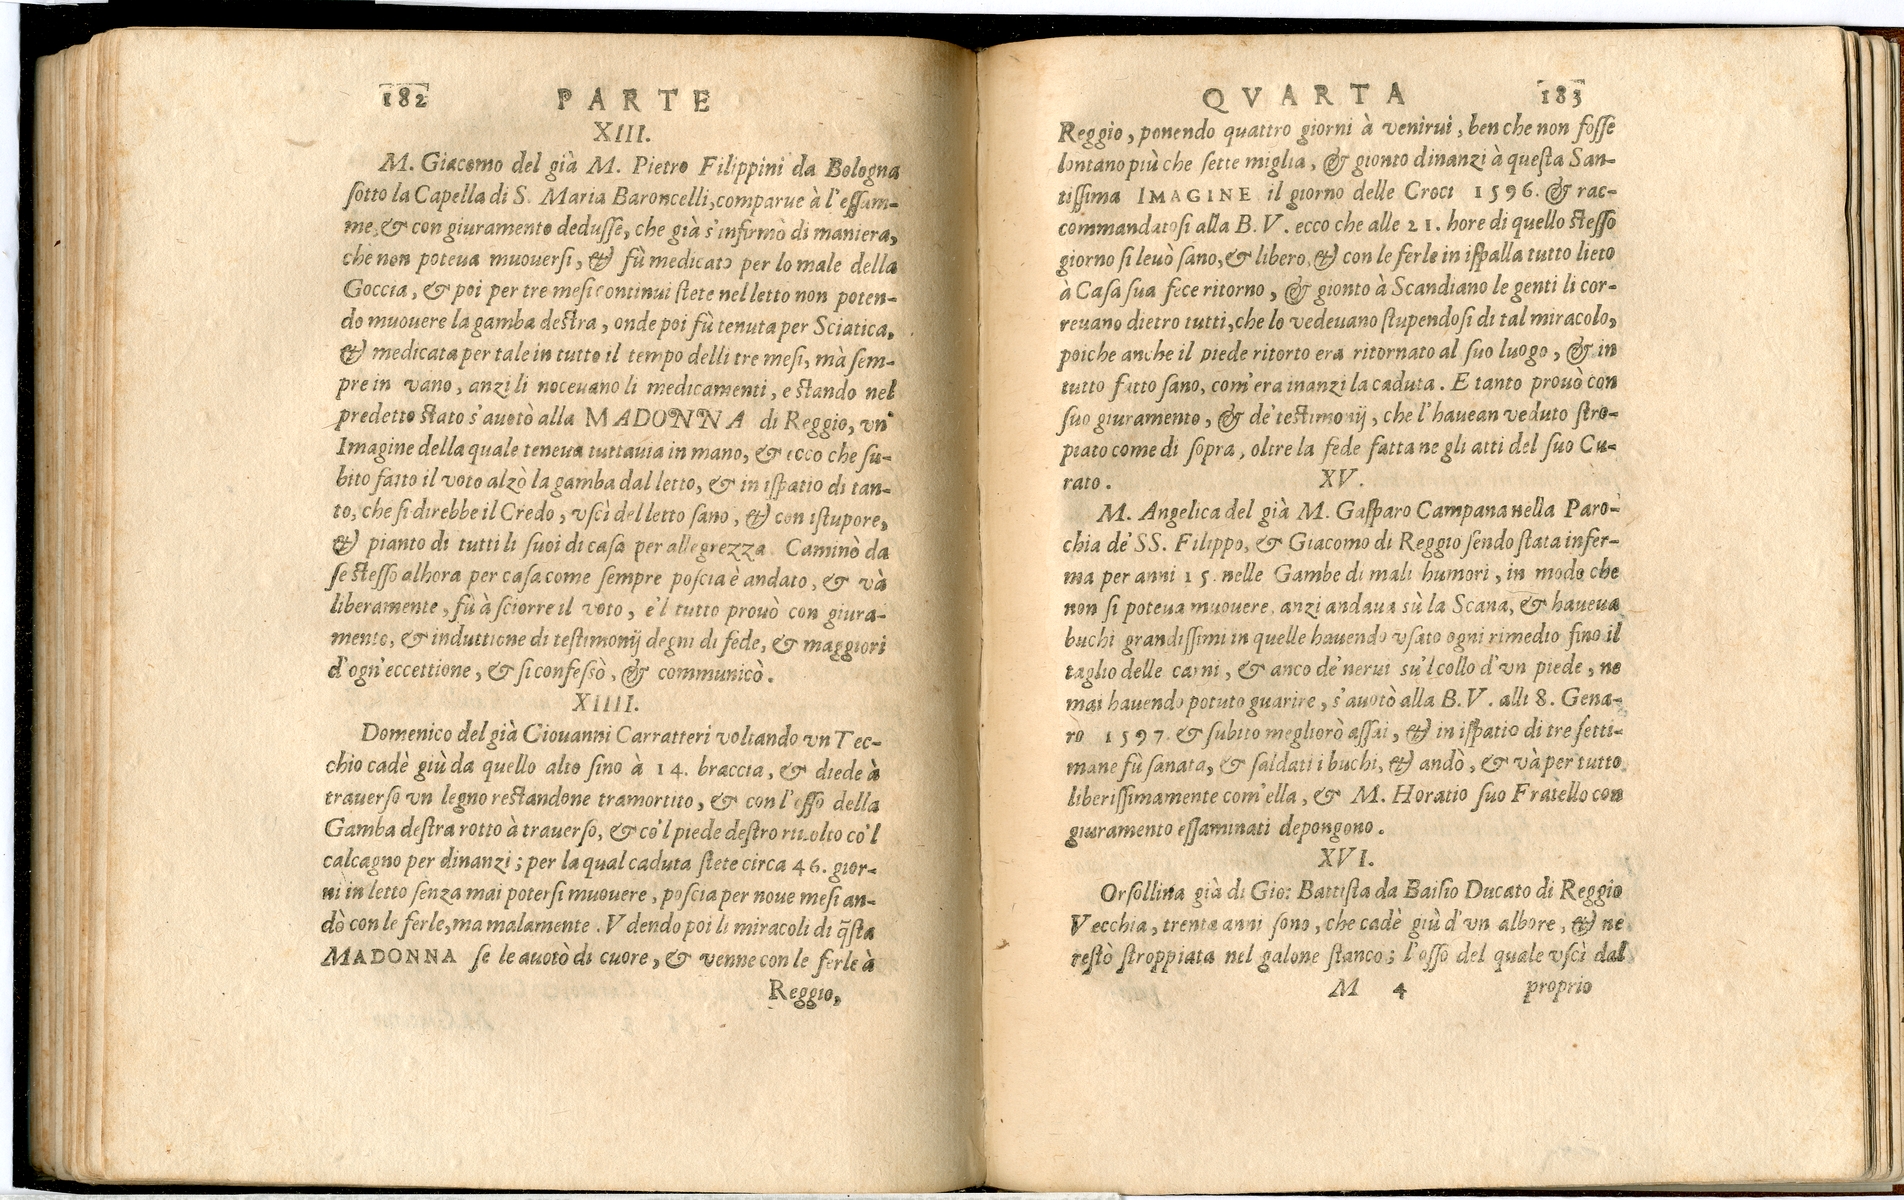 182 PARTE
XIII.
M. Giacomo del già M. Pietro Filippini da Bologna
sotto la Capella di S. Maria Baroncelli, comparue à l'essam-
me, & con giuramento dedusse, che già s'infirmò di maniera,
che non poteua muouersi, & fù medicato per lo male della
Goccia, & poi per tre mesi continui stete nel letto non poten-
do muouere la gamba destra, onde poi fù tenuta per Sciatica,
& medicata per tale in tutto il tempo delli tre mesi, mà sem-
pre in vano, anzi li noceuano li medicamenti, e stando nel
predetto stato s'auotò alla MADONNA di Reggio, vn'
Imagine della quale teneua tuttauia in mano, & ecco che su-
bito fatto il voto alzò la gamba dal letto, & in ispatio di tan-
to, che si direbbe il Credo, vscì del letto sano, & con istupore,
& pianto di tutti li suoi di casa per allegrezza. Caminò da
se stesso alhora per casa come sempre poscia è andato, & và
liberamente, fù à sciorre il voto, e'l tutto prouò con giura-
mento, & induttione di testimonij degni di fede, & maggiori
d'ogn'eccettione, & si confessò, & communicò.
XIIII.
Domenico del già Giouanni Carratteri voltando vn Tec-
chio cadè giù da quello alto sino à 14. braccia, & diede à
trauerso vn legno restandone tramortito, & con l'osso della
Gamba destra rotto à trauerso, & co'l piede destro riuolto co'l
calcagno per dinanzi; per la qual caduta stete circa 46. gior-
ni in letto senza mai potersi muouere, poscia per noue mesi an-
dò con le ferle, ma malamente. Vdendo poi li miracoli di q̃sta
MADONNA se le auotò di cuore, & venne con le ferle à
Reggio,
QVARTA 183
Reggio, ponendo quattro giorni à venirui, ben che non fosse
lontano più che sette miglia, & gionto dinanzi à questa San-
tissima IMAGINE il giorno delle Croci 1596. & rac-
commandatosi alla B. V. ecco che alle 21. hore di quello stesso
giorno si leuò sano, & libero, & con le ferle in ispalla tutto lieto
à Casa sua fece ritorno, & gionto à Scandiano le genti li cor-
reuano dietro tutti, che lo vedeuano stupendosi di tal miracolo,
poiche anche il piede ritorto era ritornato al suo luogo, & in
tutto fatto sano, com'era inanzi la caduta. E tanto prouò con
suo giuramento, & de' testimonij, che l'hauean veduto stro-
piato come di sopra, oltre la fede fatta ne gli atti del suo Cu-
rato.
XV.
M. Angelica del già M. Gasparo Campana nella Paro-
chia de' SS. Filippo, & Giacomo di Reggio sendo stata infer-
ma per anni 15. nelle Gambe di mali humori, in modo che
non si poteua muouere, anzi andaua sù la Scana, & haueua
buchi grandissimi in quelle hauendo vsato ogni rimedio fino il
taglio delle carni, & anco de' nerui su'l collo d'vn piede, ne
mai hauendo potuto guarire, s'auotò alla B. V. alli 8. Gena-
ro 1597. & subito megliorò assai, & in ispatio di tre setti-
mane fù sanata, & saldati i buchi, & andò, & và per tutto
liberissimamente com'ella, & M. Horatio suo Fratello con
giuramento essaminati depongono.
XVI.
Orsollina già di Gio: Battista da Baisio Ducato di Reggio
Vecchia, trenta anni sono, che cadè giù d'vn albore, & ne
restò stroppiata nel galone stanco; l'osso del quale vscì dal
M 4 proprio